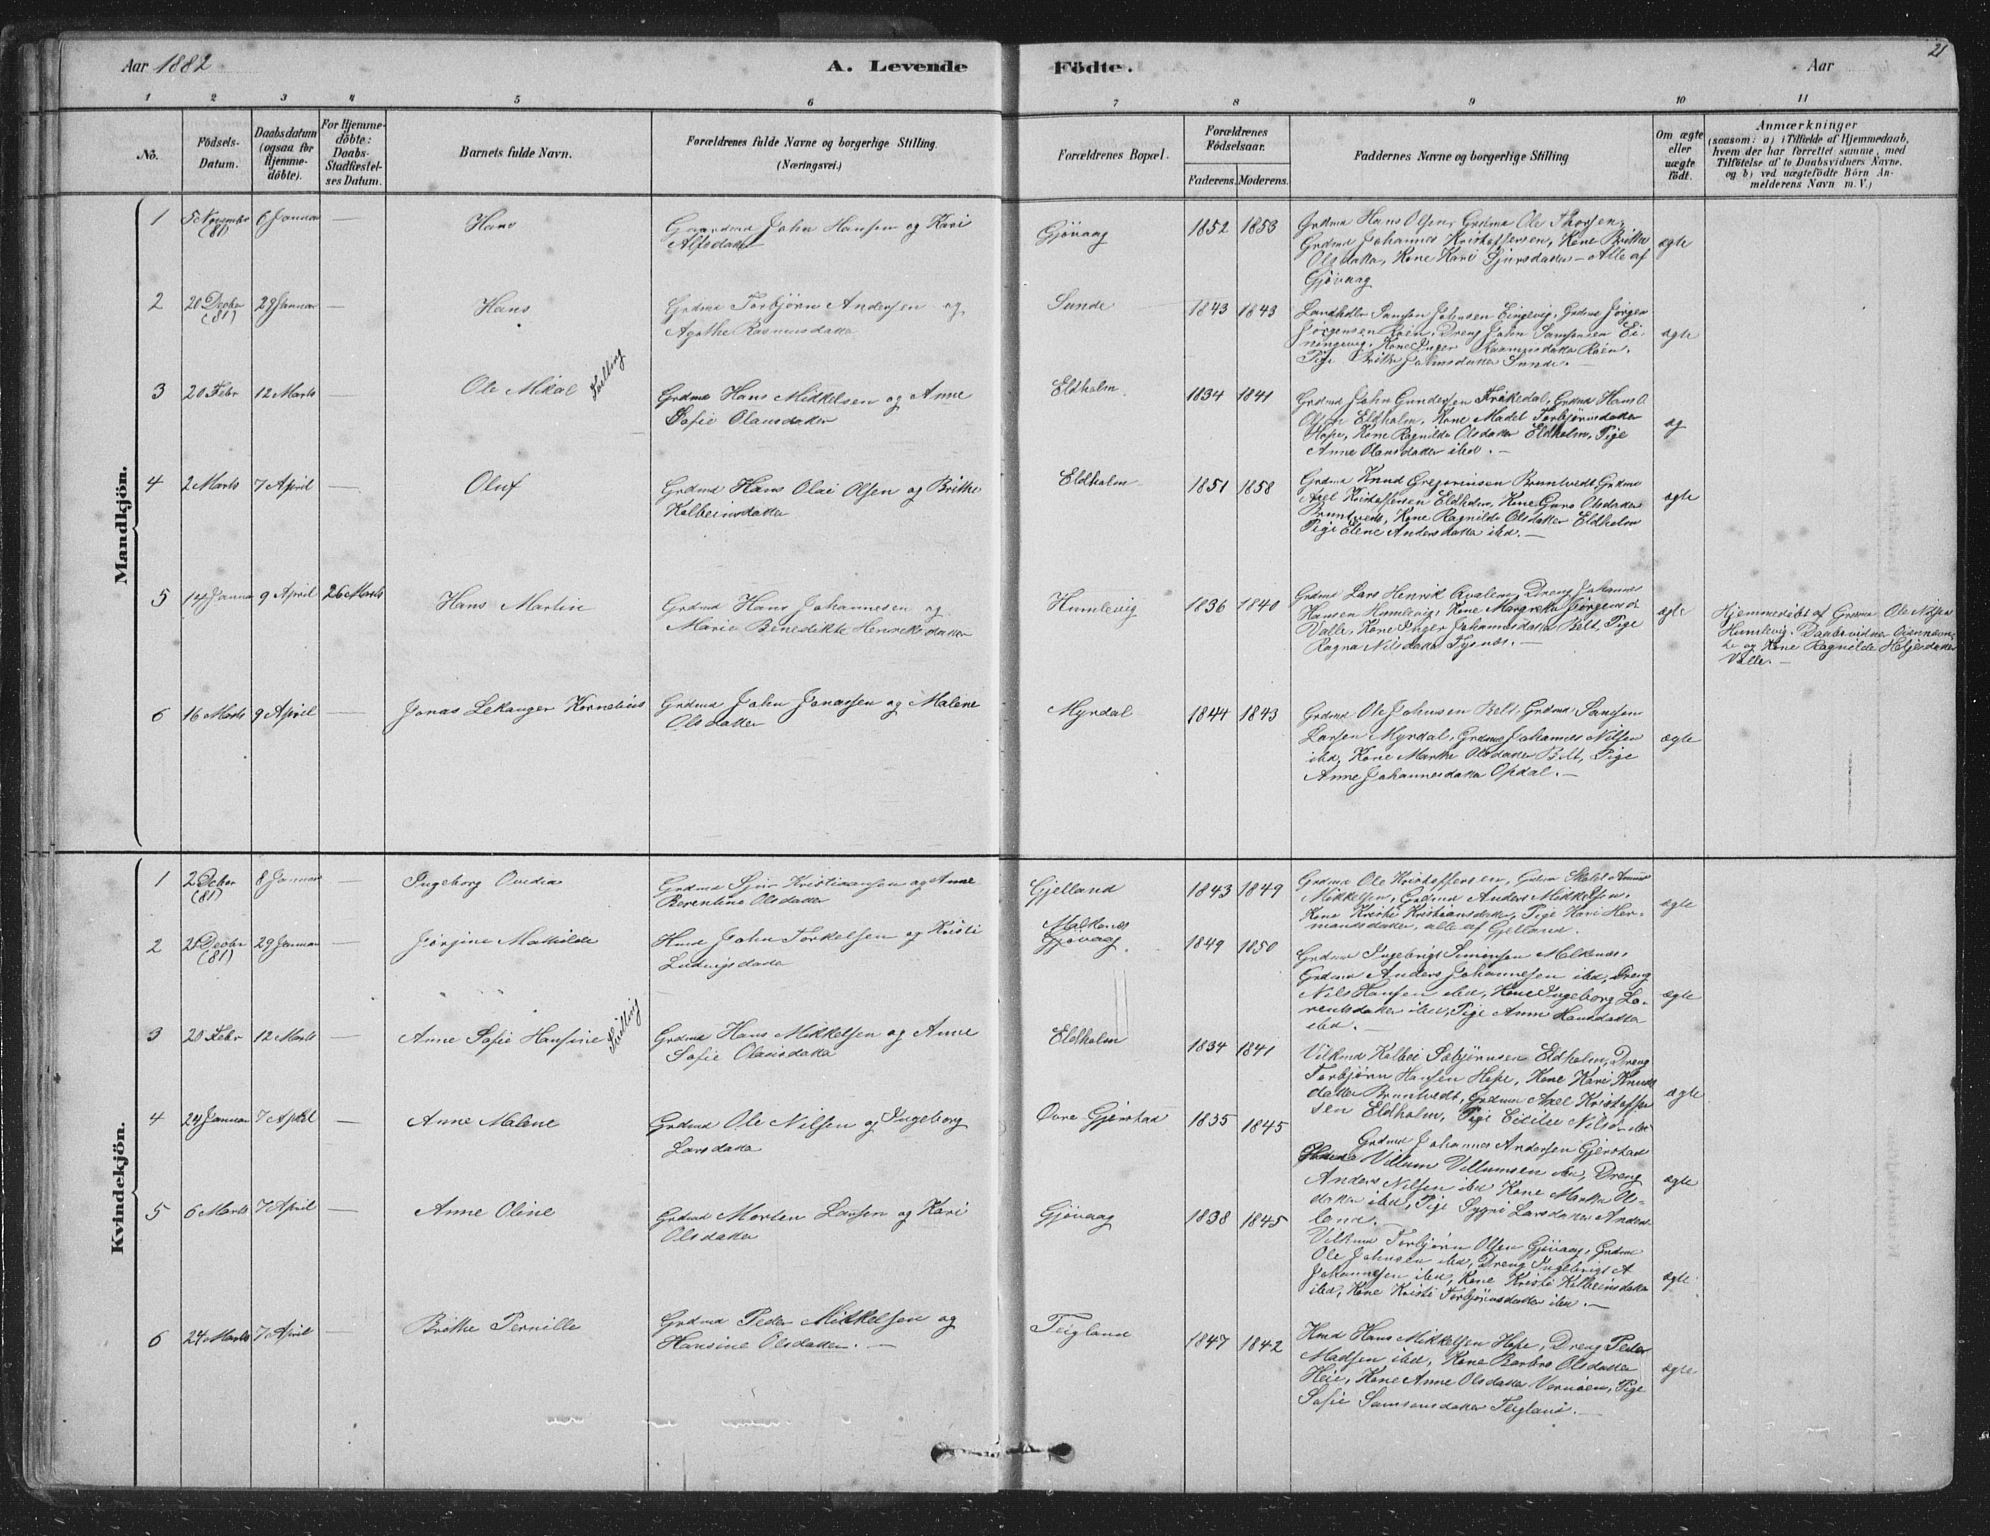 Aar 1882
A. Levende
Födte.
Aar
21
1 2 3 4 5 6 7 8 9 10 11
No.
Födsels-
Datum.
Daabsdatum
(ogsaa for
Hjemme-
döbte).
For Hjemme-
döbte:
Daabs-
Stadfæstel-
ses Datum.
Barnets fulde Navn.
Forældrenes fulde Navne og borgerlige Stilling
(Næringsvei.)
Forældrenes Bopæl.
Forældrenes
Födselsaar.
Faderens. Moderens.
Faddernes Navne og borgerlige Stilling
Om ægte
eller
uægte
födt.
Anmærkninger
(saasom: a) i Tilfælde af Hjemmedaab,
hvem der har forrettet samme, med
Tilföielse af to Daabsvidners Navne,
og b) ved uægtefödte Börn An-
melderens Navn m. V.)
Mandkjön.
1 5 Novembr (81) 6 Januar — Hans
Gaardmd John Hansen og Kari
Alfsdatter
Gjövaag 1852 1853
Grdmd Hans Olsen, Grdmd Ole Thorsen,
Grdmd Johannes Kristoffersen, Kone Brithe
Olsdatter, Kone Kari Sjursdatter — Alle af
Gjövaag
ægte
2 20 Decbr (81) 29 Januar — Hans
Grdmd Torbjørn Andersen og
Agathe Rasmusdatter
Sunde 1843 1843
Landhdlr Samson Johnsen Einingevig, Grdmd Jörgen
Jörgensen Raën, Dreng John Samsonsen Ei-
ningevig, Kone Inger Rasmusdatter Raën,
Pige Brithe Johnsdatter Sunde.
ægte
3 20 Febr 12 Marts — Ole Mikal Tvilling
Grdmd Hans Mikkelsen og Anne
Sofie Olausdatter
Eldholm 1834 1841
Grdmd John Gundersen Frökedal, Grdmd Hans O.
Olsen Eldholm, Kone Madel Torbjörnsdatter
Hope, Kone Ragnilde Olsdatter Eldholm, Pige
Anne Olausdatter ibd. —
æg
4 2 Marts 7 April — Oluf
Grdmd Hans Olai Olsen og Brithe
Kolbeinsdatter
Eldholm 1851 1858
Grdmd Knud Gregoriusen Bruntvedt, Grdmd
Axel Kristoffersen Eldholm, Kone Guro Olsdatter
Bruntvedt, Kone Ragnilde Olsdatter Eldholm
Pige Elene Andersdatter ibd. —
ægte
5 14 Januar 9 April 26 Marts Hans Martin
Grdmd Hans Johannesen og
Marie Benedikte Henriksdatter
Humlevig 1836 1840
Grdmd Lars Henrik Hvalen, Dreng Johannes
Hansen Humlevig, Kone Margrethe Jörgensd.
Valle, Kone Inger Johannesdatter Belt, Pige
Ragna Nilsdatter Tysnes. —
ægte
Hjemmedöbt af Grdmd Ole Nilsen
Humlevig. Daabsvidner Ovennævn-
te og Kone Ragnilde Heljesdatter
Valle. —
6 16 Marts 9 April — Jonas Lekanger Kornelius
Grdmd John Jonassen og Malene
Olsdatter
Myrdal 1844 1843
Grdmd Ole Johnsen Belt, Grdmd Samson
Larsen Myrdal, Grdmd Johannes Nilsen
ibd, Kone Marthe Olsdatter Belt, Pige
Anne Johannesdatter Opdal. —
ægte
Kvindekjön.
1 2 Decbr (81) 8 Januar — Ingeborg Ovedia
Grdmd Sjur Kristiansen og Anne
Berentine Olsdatter
Gjelland 1843 1849
Grdmd Ole Kristoffersen,
Mikkelsen, Grdmd Anders Mikkelsen,
Kone Kristi Kristiansdatter, Pige Kari Her-
mansdatter, alle af Gjelland.
ægte
2 28 Decbr (81) 29 Januar — Jörgine Mathilde
Hmd John Torkelsen og Kristi
Ludvigsdatter
Malkenes
Gjövaag 1849 1850
Grdmd Ingebrigt Simonsen Malkenes,
Grdmd Anders Johannesen ibd, Dreng
Nils Hansen ibd, Kone Ingeborg La-
rentsdatter ibd, Pige Anne Hansdatter
ibd. —
ægte
3 20 Febr 12 Marts — Anne Sofie Hansine Tvilling
Grdmd Hans Mikkelsen og Anne
Sofie Olausdatter
Eldholm 1834 1841
Vilkmd Kolbei Sebjørnsen Eldholm, Dreng
Torbjørn Hansen Hope, Kone Kari Knuds
datter Bruntvedt, Grdmd Axel Kristoffer
sen Eldholm, Pige Cicilie Nilsen ibd
ægte
4 24 Januar 7 April — Anne Malene
Grdmd Ole Nilsen og Ingeborg
Larsdatter
Övre Gjerstad 1835 1845
Grdmd Johannes Andersen Gjerstad
Villum Villumsen ibd, Dreng
Anders Nilsen ibd Kone Marthe Ols-
datter ibd, Pige Sygni Larsdatter Andes
land.
ægte
5 6 Marts 7 April — Anne Oline
Grdmd Morten Larsen og Kari
Olsdatter
Gjövaag 1838 1845
Vilkmd Torbjørn Olsen Gjövaag, Grdmd
Ole Johnsen ibd, Dreng Ingebrigt A
Johannesen ibd, Kone Kristi Kolbeinsdatter
ibd, Kone Kristi Torbjörnsdatter ibd. —
ægte
6 24 Marts 7 April — Brithe Pernille
Grdmd Peder Mikkelsen og
Hansine Olsdatter. —
Teigland 1847 1842
Hmd Hans Mikkelsen Hope, Dreng Peder
Madsen ibd, Kone Barbro Olsdatter
Heie, Kone Anne Olsdatter Vernöen, Pige
Sofie Samsonsdatter Teigland. —
ægte